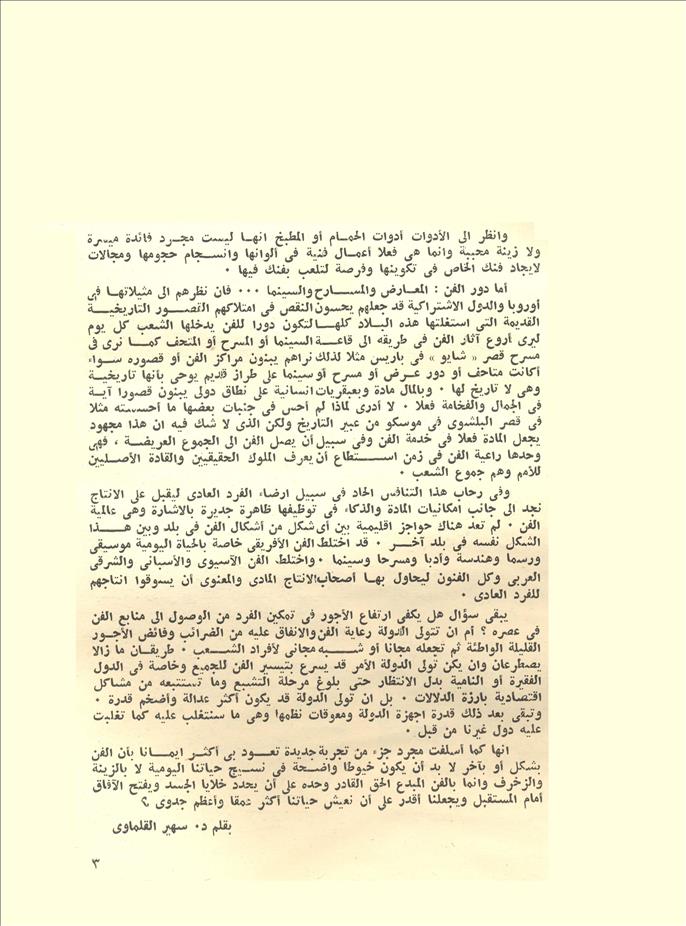 وانظر الى الأدوات أدوات الحمـام أو المطبخ انهـا ليست مجـرد فائدة ميسرة
ولا زينة محببة وانما هى فعلا أعمـال فنية فى ألوانها وانسـجام حجومها ومجالات
لايجاد فنك الخاص فى تكوينها وفرصة لتلعب بفنك فيها .
أما دور الفن : المعـارض والمسـارح والسينما ... فان نظرهم الى مثيلاتهـا فى
أوروبا والدول الاشتراكية قد جعلهم يحسون النقص فى امتلاكهم القصـور التاريخيـة
القديمة التى استغلتها هذه البـلاد كلهـا لتكون دورا للفن يدخلها الشعب كل يوم
ليرى أروع آثار الفن فى طريقه الى قاعـة السينما أو المسرح أو المتحف كمـا نرى فى
مسرح قصر « شايو » فى باريس مثلا لذلك نراهم يبنون مراكز الفن أو قصوره سـواء
أكانت متاحف أو دور عـرض أو مسرح أو سينما على طراز قديم يوحى بأنها تاريخيـة
وهى لا تاريخ لها . وبالمال مادة وبعبقريات انسانية على نطاق دولى يبنون قصورا آيـة
فى الجمال والفخامة فعلا . لا أدرى لماذا لم أحس فى جنبات بعضها ما أحسسته مثلا
فى قصر البلشوى فى موسكو من عبير التاريخ ولكن الذى لا شك فيه ان هذا مجهود
يجعل المادة فعلا فى خدمة الفن وفى سبيل أن يصل الفن الى الجموع العريضـة ، فهى
وحدها راعية الفن فى زمن اسـتطاع أن يعرف الملوك الحقيقيين والقادة الأصـليين
للأمم وهم جموع الشعب .
وفى رحاب هذا التنافس الحاد فى سبيل ارضاء الفرد العادى ليقبل على الانتاج
نجد الى جانب امكانيات المادة والذكاء فى توظيفها ظاهرة جديرة بالاشارة وهى عالمية
الفن . لم تعد هناك حواجز اقليمية بين أى شكل من أشكال الفن فى بلد وبين هـذا
الشكل نفسه فى بلد آخـر . قد اختلط الفن الأفريقى خاصة بالحياة اليومية موسيقى
ورسما وهندسة وأدبا ومسرحا وسينما . واختلط الفن الآسيوى والأسبانى والشرقى
العربى وكل الفنون ليحاول بهـا أصحاب الانتاج المادى والمعنوى أن يسوقوا انتاجهم
للفرد العادى .
يبقى سؤال هل يكفى ارتفاع الأجور فى تمكين الفرد من الوصول الى منابع الفن
فى عصره ؟ أم ان تتولى الدولة رعاية الفن والانفاق عليه من الضرائب وفائض الأجـور
القليلة الواطئة ثم تجعله مجانا أو شـبه مجانى لأفراد الشـعب . طريقـان ما زالا
يصطرعان وان يكن تولى الدولة الأمر قد يسرع بتيسير الفن للجميع وخاصة فى الدول
الفقيرة أو النامية بدل الانتظار حتى بلوغ مرحلة التشبع وما تستتبعه من مشاكل
اقتصادية بارزة الدلالات . بل ان تولى الدولة قد يكون أكثر عدالة وأضخم قدرة .
وتبقى بعد ذلك قدرة اجهزة الدولة ومعوقات نظمها وهى ما سنتغلب عليه كما تغلبت
عليه دول غيرنا من قبل .
انها كما أسلفت مجرد جزء من تجربة جديدة تعـود بى أكثـر ايمـانا بأن الفن
بشكل أو بآخر لا بد أن يكون خيوطا واضحة فى نسـيج حياتنا اليومية لا بالزينة
والزخرف وانما بالفن المبدع الحق القادر وحده على أن يجدد خلايا الجسد ويفتح الآفاق
أمام المستقبل ويجعلنا أقدر على أن نعيش حياتنا أكثر عمقا وأعظم جدوى ؟
بقلم د. سهير القلماوى
٣